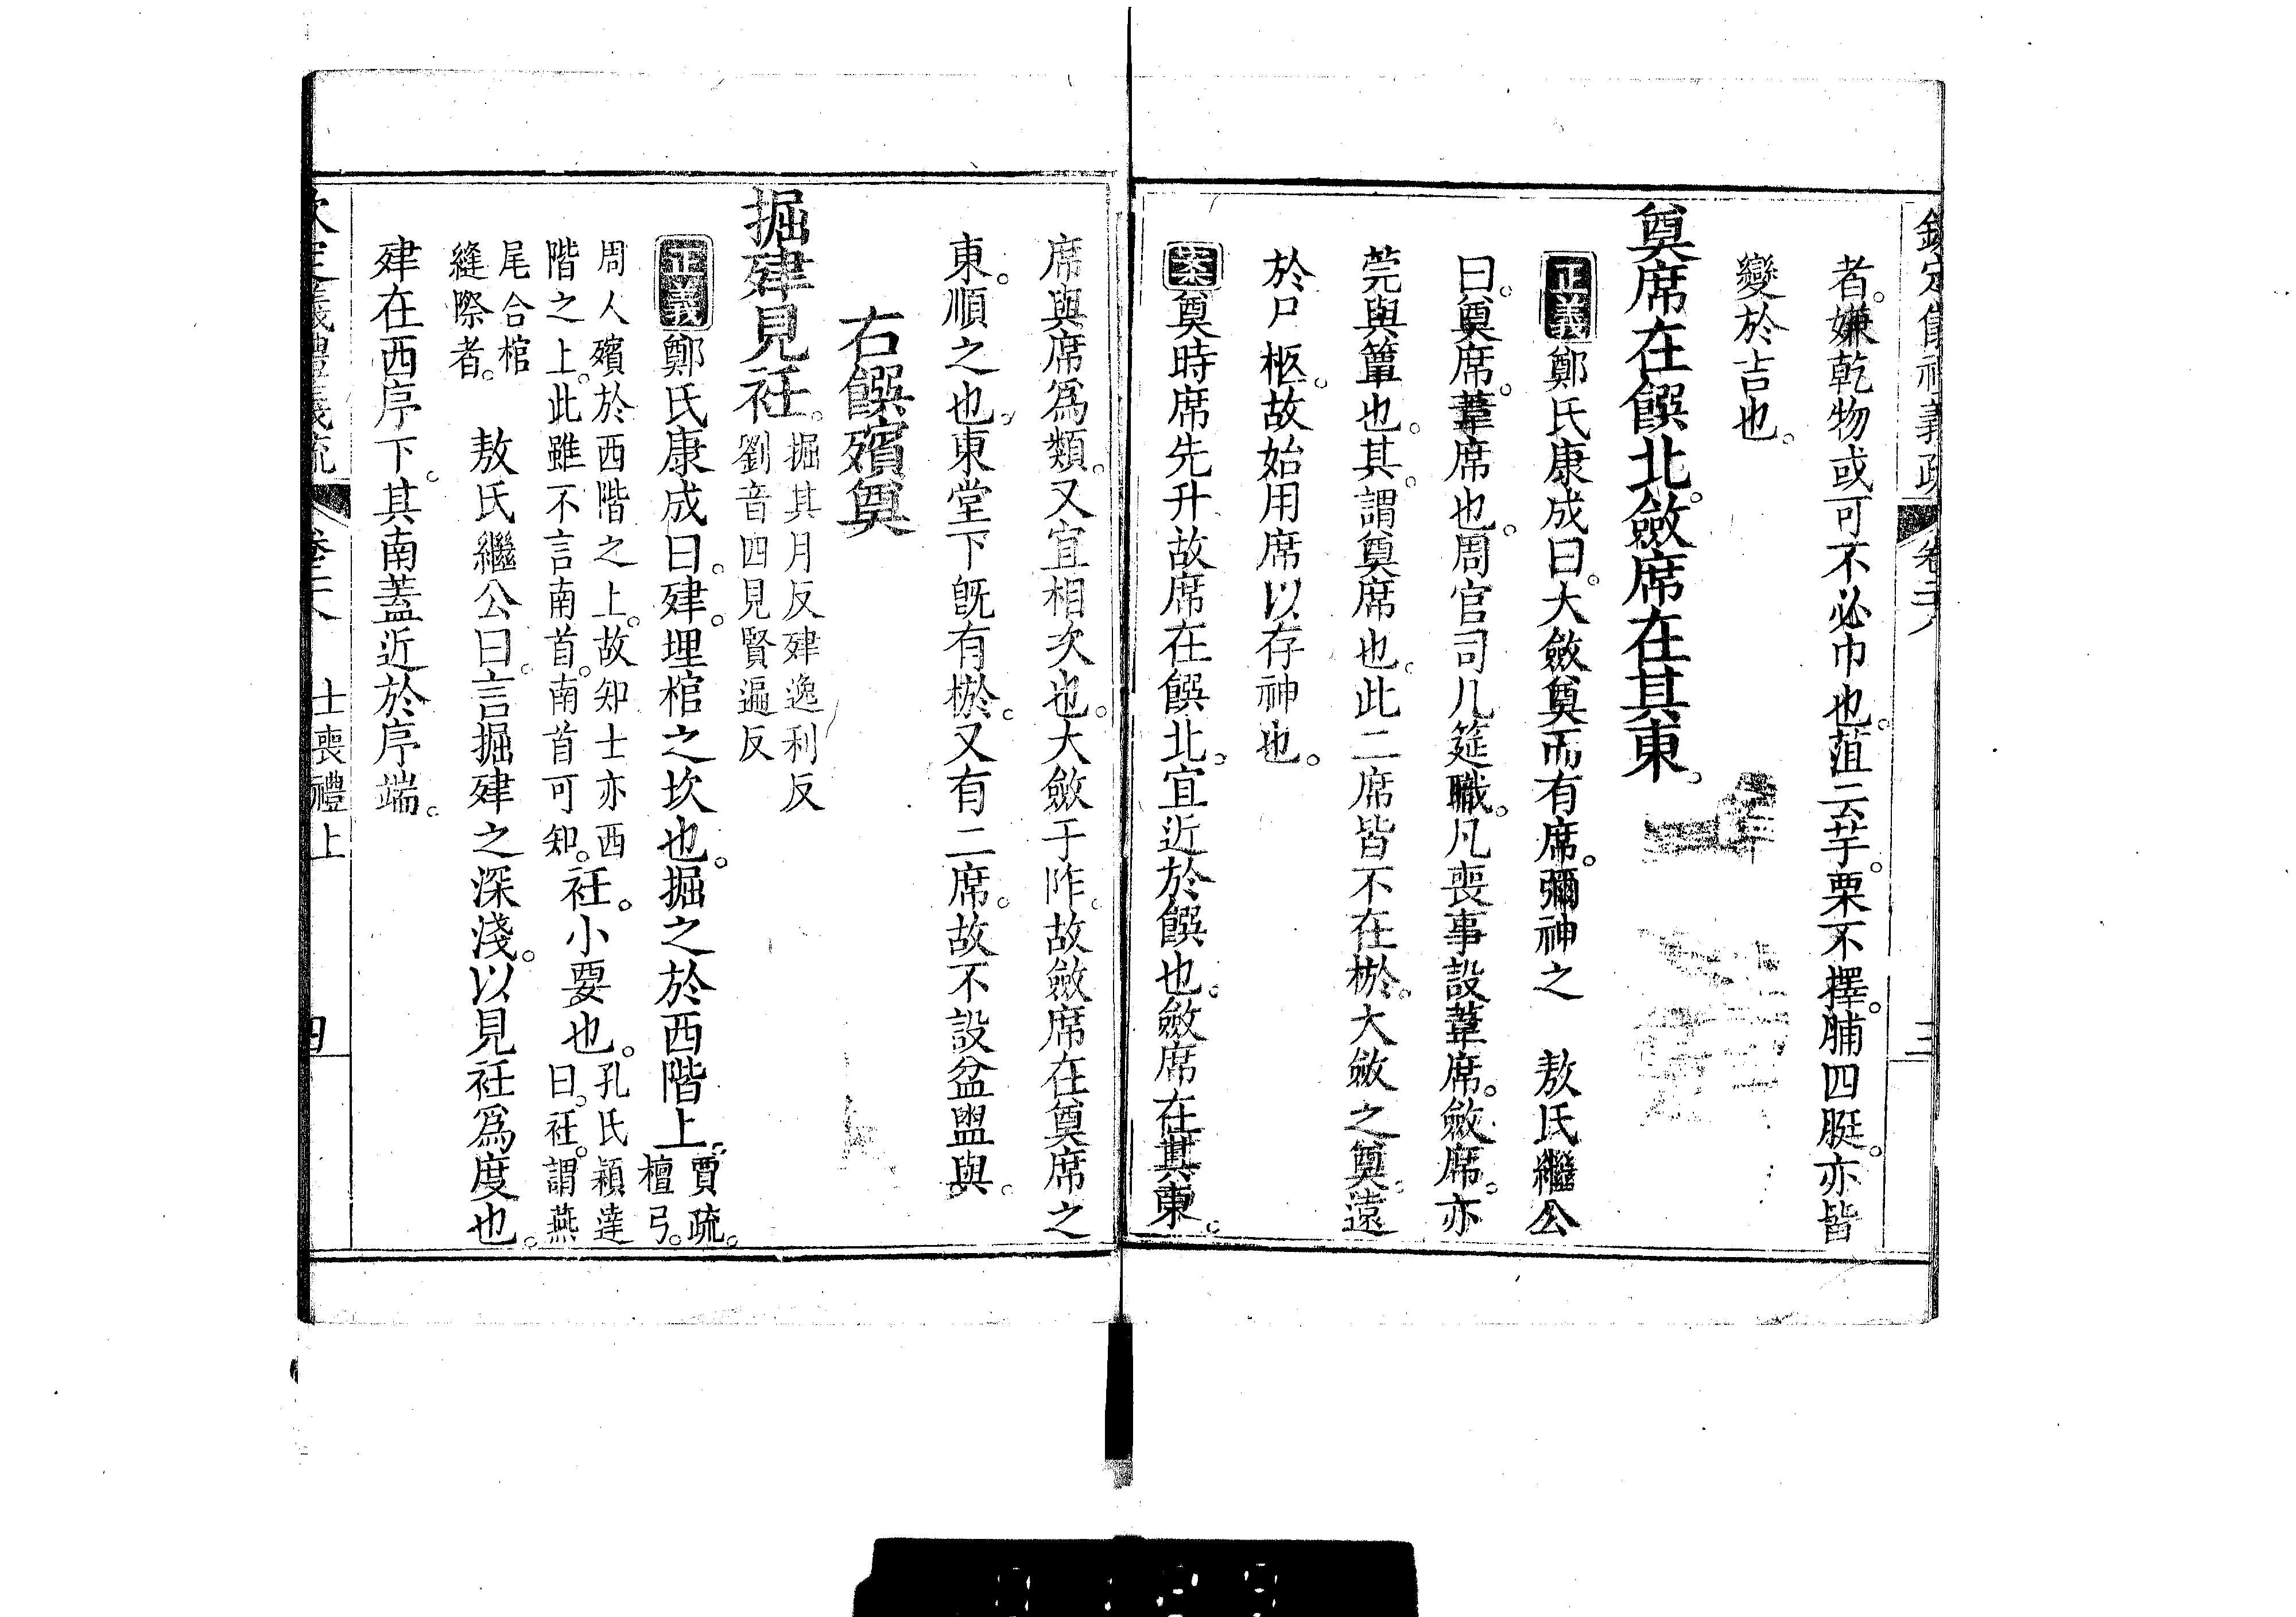 欽定儀禮義疏 卷二十八 三
者。嫌乾物或可不必巾也。菹云芋。栗不擇。脯四脡。亦皆
變於吉也。
奠席在饌北。斂席在其東。
正義 鄭氏康成曰。大斂奠而有席。彌神之 敖氏繼公
曰。奠席。葦席也。周官司几筵職。凡喪事設葦席。斂席。亦
莞與簟也。其。謂奠席也。此二席皆不在棜。大斂之奠。遠
於尸柩。故始用席以存神也。
案 奠時席先升故席在饌北。宜近於饌也。斂席在其東。
席與席爲類。又宜相次也。大斂于阼。故斂席在奠席之
東。順之也。東堂下旣有棜。又有二席。故不設盆盥與。
右饌殯奠
掘肂見衽。掘其月反肂逸利反
劉音四見賢遍反
正義 鄭氏康成曰。肂。埋棺之坎也。掘之於西階上。賈疏。
檀弓。
周人殯於西階之上。故知士亦西
階之上。此雖不言南首。南首可知。衽。小要也。孔氏穎達
曰。衽。謂燕
尾合棺
縫際者。 敖氏繼公曰。言掘肂之深淺。以見衽爲度也。
肂在西序下。其南蓋近於序端。
欽定儀禮義疏 卷二十八 士喪禮上 四